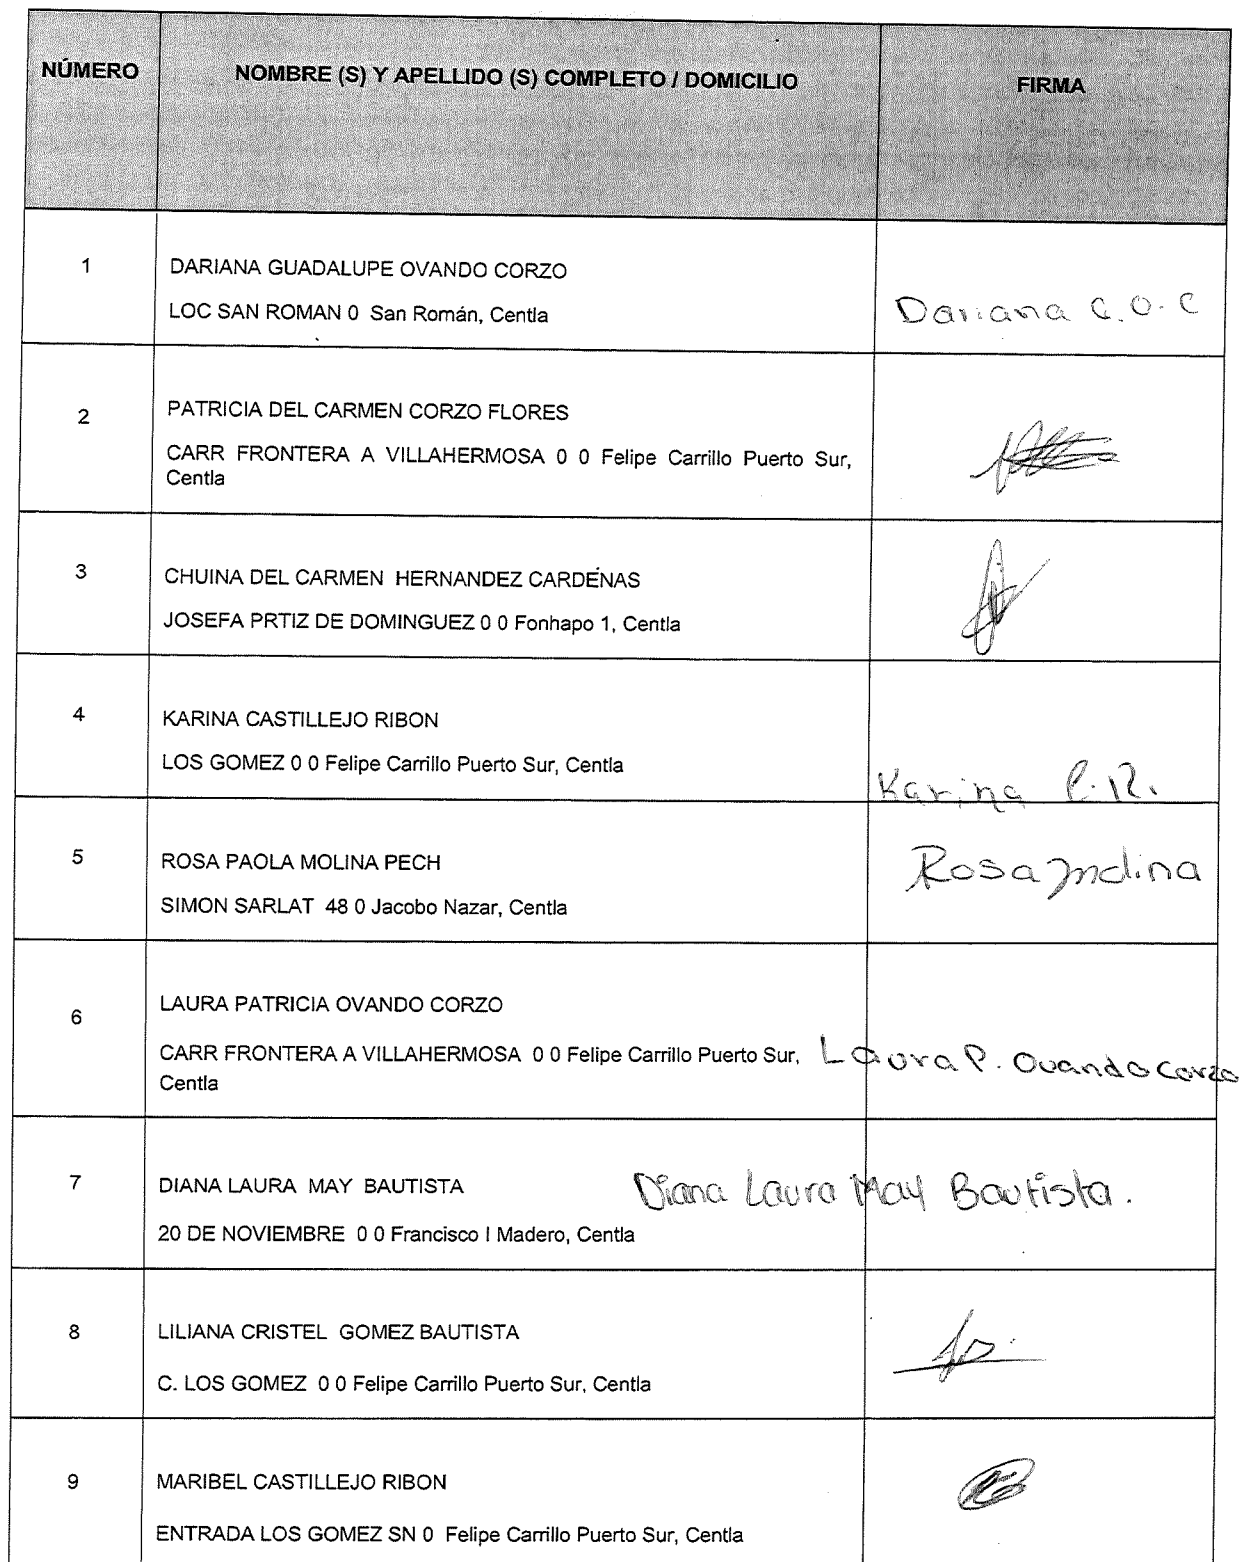 NÚMERO
NOMBRE (S) Y APELLIDO (S) COMPLETO / DOMICILIO
FIRMA
1
DARIANA GUADALUPE OVANDO CORZO
LOC SAN ROMAN 0 San Román, Centla
Dariana G.O.C
2
PATRICIA DEL CARMEN CORZO FLORES
CARR FRONTERA A VILLAHERMOSA 0 0 Felipe Carrillo Puerto Sur,
Centla
3
CHUINA DEL CARMEN HERNANDEZ CARDENAS
JOSEFA PRTIZ DE DOMINGUEZ 0 0 Fonhapo 1, Centla
4
KARINA CASTILLEJO RIBON
LOS GOMEZ 0 0 Felipe Carrillo Puerto Sur, Centla
Karina C.R.
5
ROSA PAOLA MOLINA PECH
SIMON SARLAT 48 0 Jacobo Nazar, Centla
Rosa Molina
6
LAURA PATRICIA OVANDO CORZO
CARR FRONTERA A VILLAHERMOSA 0 0 Felipe Carrillo Puerto Sur,
Centla
Laura P. Ovando Corzo
7
DIANA LAURA MAY BAUTISTA
20 DE NOVIEMBRE 0 0 Francisco I Madero, Centla
Diana Laura May Bautista.
8
LILIANA CRISTEL GOMEZ BAUTISTA
C. LOS GOMEZ 0 0 Felipe Carrillo Puerto Sur, Centla
9
MARIBEL CASTILLEJO RIBON
ENTRADA LOS GOMEZ SN 0 Felipe Carrillo Puerto Sur, Centla